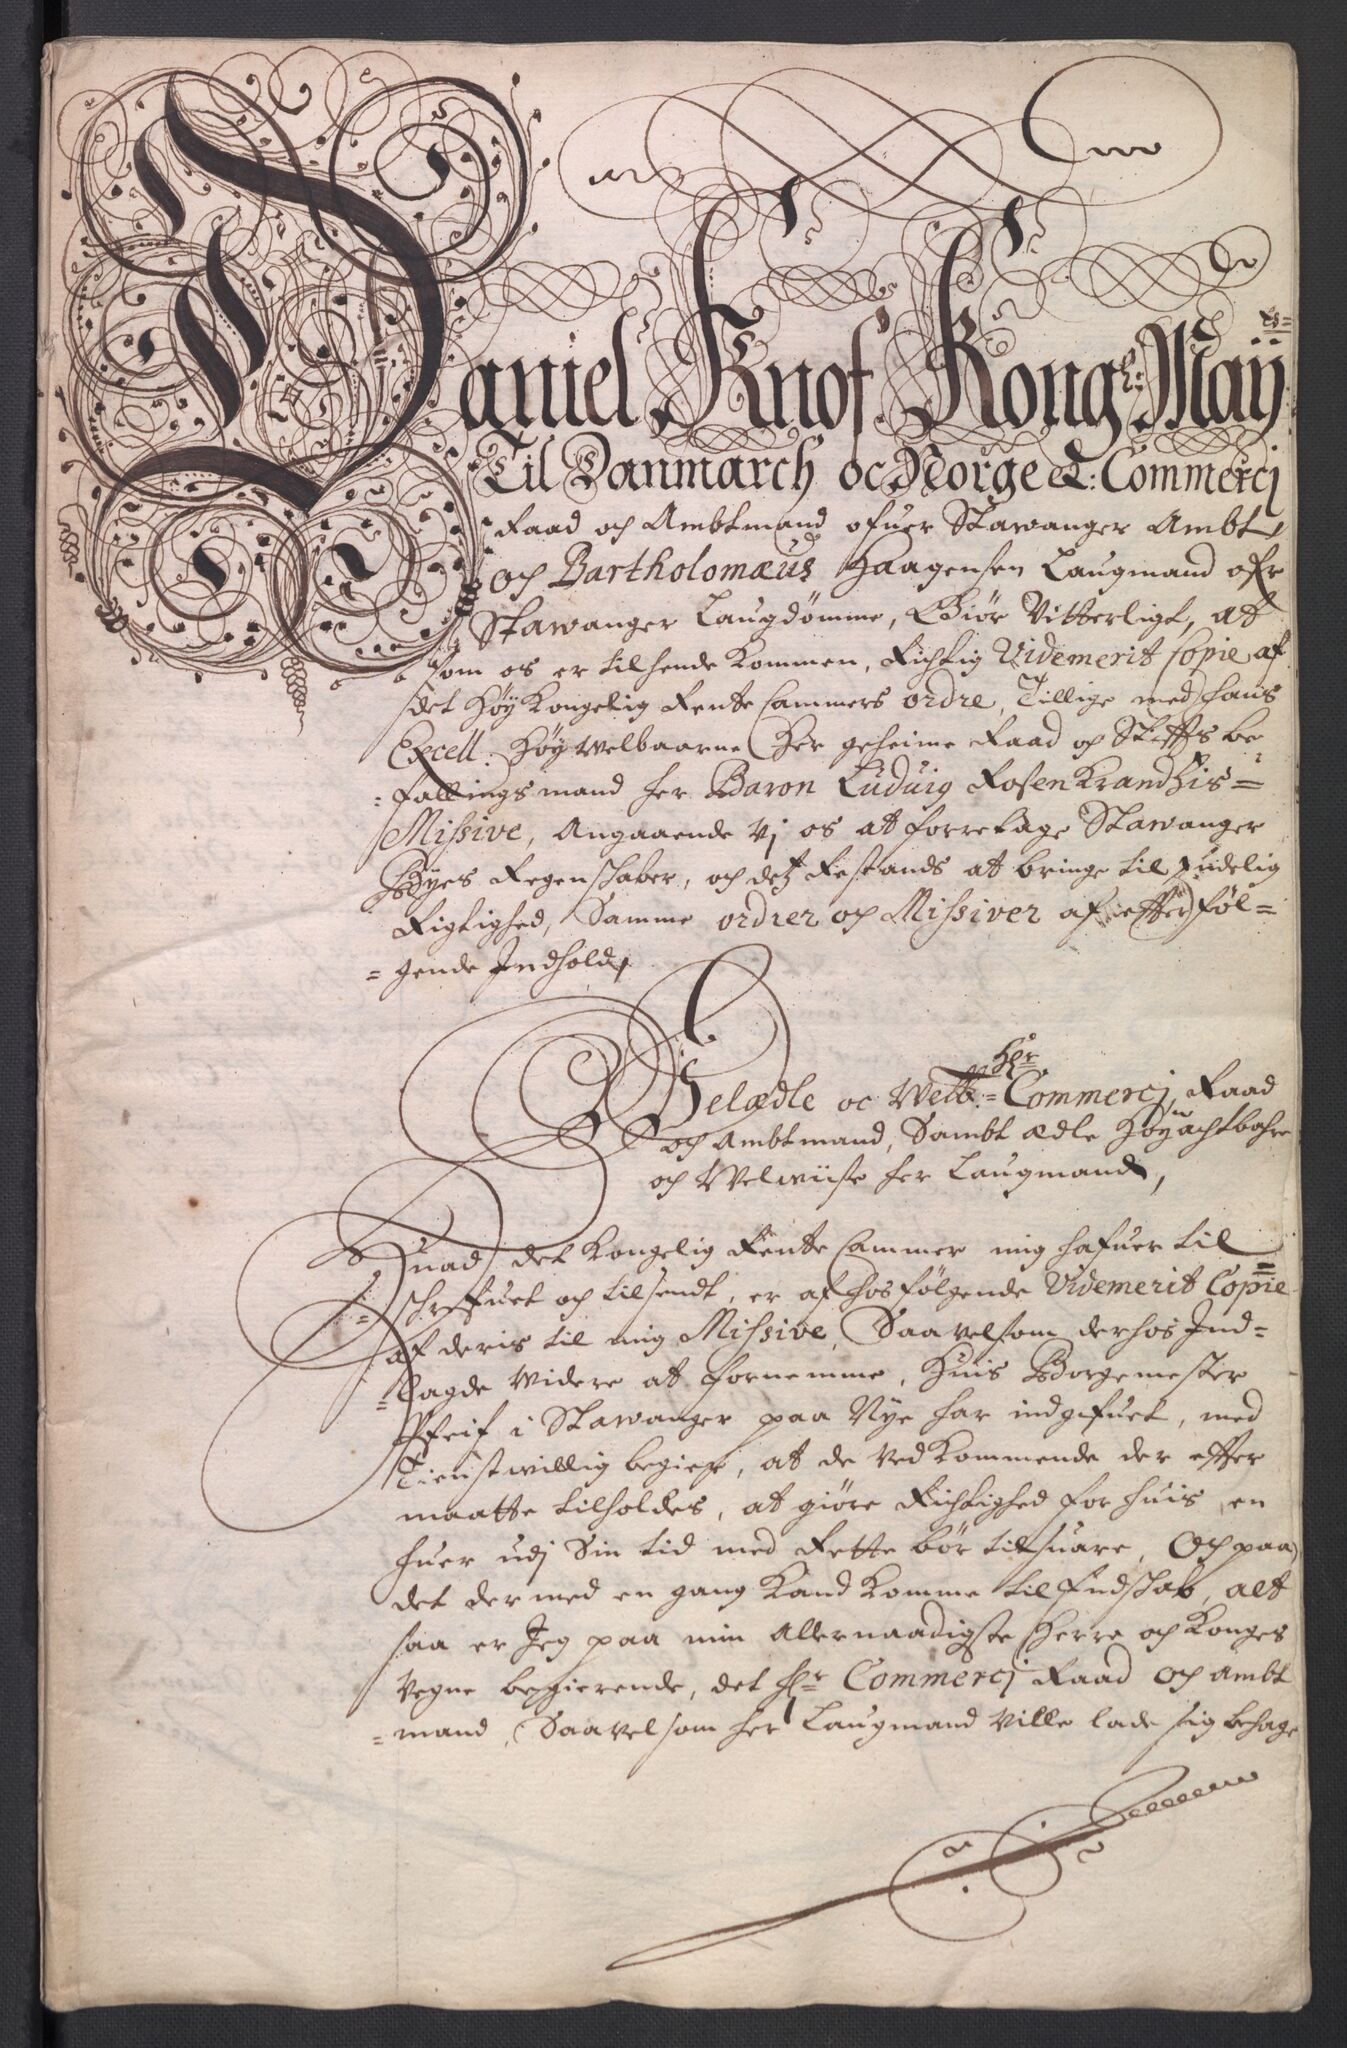 Daniel Knof. Kongl: Mayts=
Til Danmarch oc Norge et: Commercj
Raad och Ambtmand ofuer Stawanger Ambt,
och Bartholomæus Haagensen Laugmand ofr
Stawanger Laugdømme, Giør Vitterligt, at
som os er tilhende kommen, Richtig Videmerit Copie af
det Høy Kongelig Rente Cammers ordre, Tillige med hans
Excell: Høy Welbaarne Her geheime Raad og Stiffts be
=fallings mand her Baron Luduig Rosenkrandtzis=
Missive, Angaaende Vj os at forretage Stawanger
Byes Regenskaber, och detz Restands at bringe til endelig
Rigtighed, Samme ordrer och Missiver af effterføl=
=gende Indhold,
Velædle oc Welb:= Hr Commercj Raad
och Ambtmand, Sambt ædle Høyachtbahre
och Welwiise her Laugmand,
Huad det Kongelig Rente Cammer mig hafuer til
=schrefuet och tilsendt, er af hosfølgende Videmerit Copie
af deris til mig Missive, Saavelsom derhos Ind=
=lagde Widere at fornemme, Huis Borgemester
Pfeif i Stawanger paa Nye har indgifuet, med
Tienstwillig begier, at de vedkommende der effter
maatte tilholdes, at giøre Richtighed for huis en
huer udj Sin tid med Rette bør tilsuare, Och paa
det der med en gang Kand komme til Endskab, alt
saa er Jeg paa min Allernaadigste Herre och Konges
Vegne begierende, det Hr Commercj Raad och Ambt
=mand, Saavelsom her Laugmand Ville lade sig behage